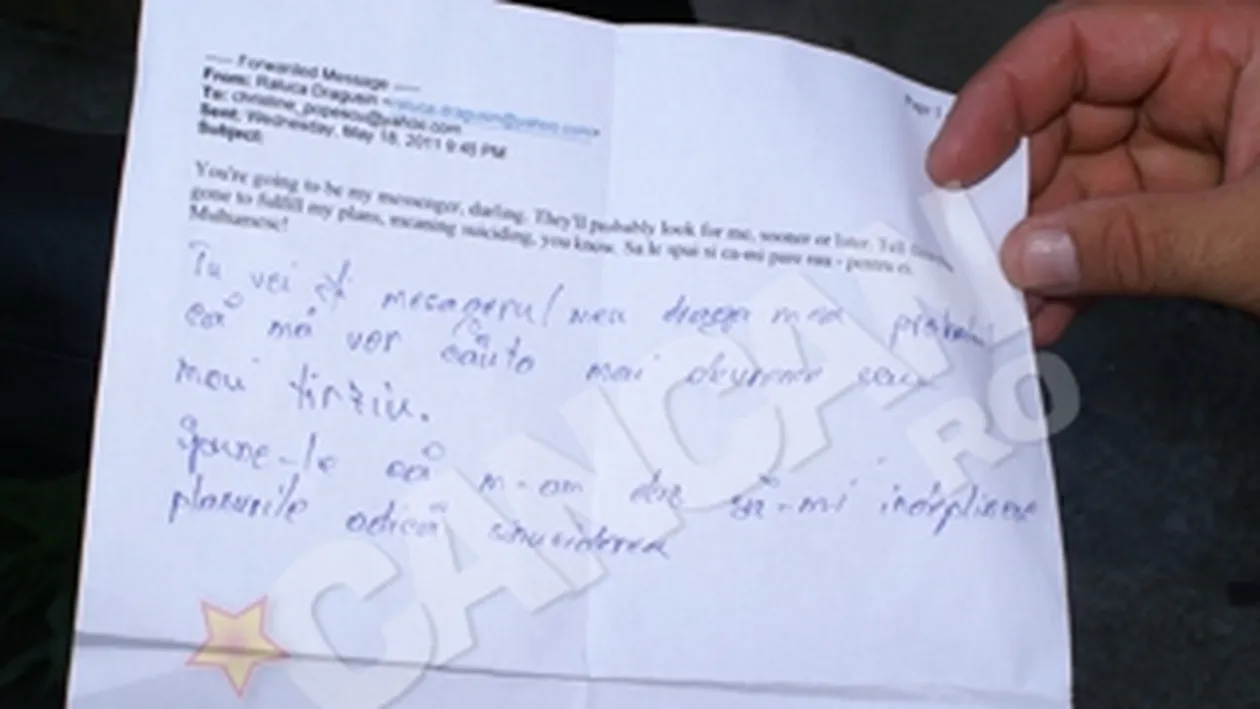 ----- Forwarded Message -----
From: Raluca Dragusin <raluca.dragusin@yahoo.com>
To: christine_popescu@yahoo.com
Sent: Wednesday, May 18, 2011 9:45 PM
Subject:
Page 1
You're going to be my messenger, darling. They'll probably look for me, sooner or later. Tell
gone to fulfill my plans, meaning suiciding, you know. Sa le spui si ca-mi pare rau - pentru ei.
Multumesc!
Tu vei fi mesagerul meu draga mea probabil
că mă vor căuta mai devreme sau
mai tirziu.
Spune-le că m-am dus să-mi indeplinesc
planurile adică sinuciderea
CANCAN.RO